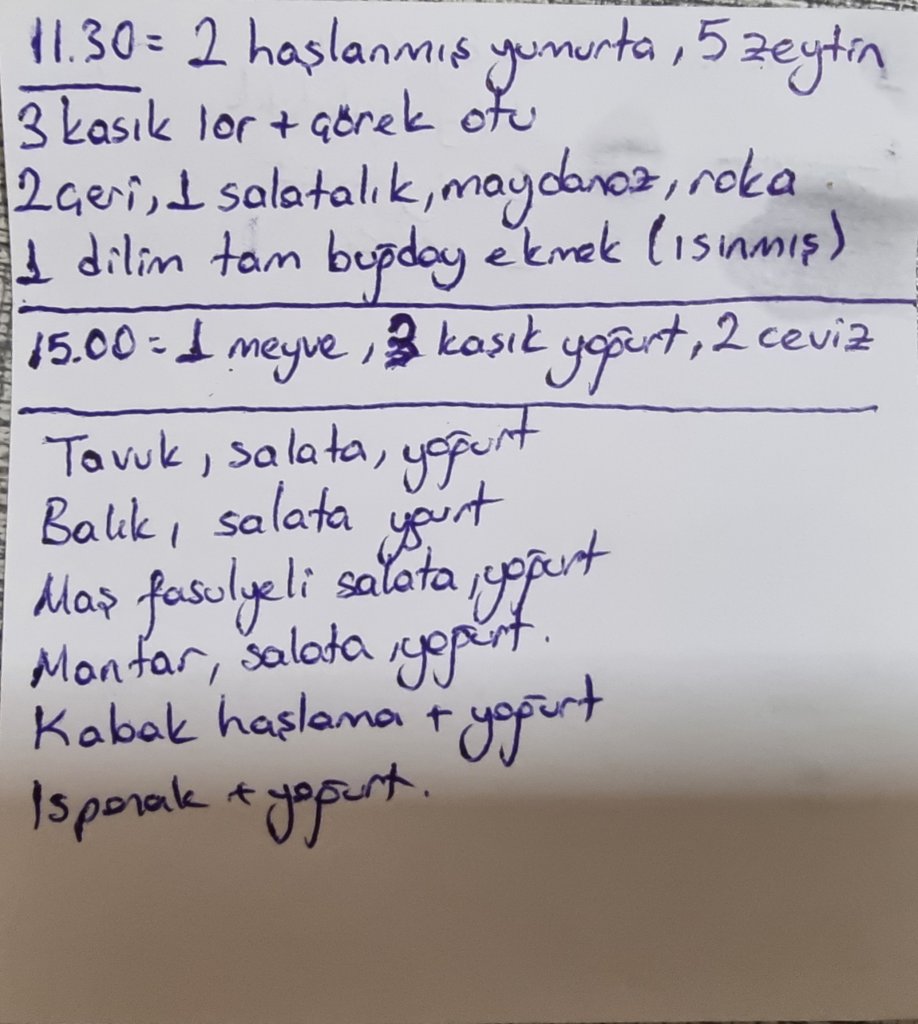 11.30 = 2 haşlanmış yumurta, 5 zeytin
3 kasık lor + çörek otu
2 çeri, 1 salatalık, maydanoz, roka
1 dilim tam buğday ekmek (ısınmış)
15.00 = 1 meyve, 3 kasık yoğurt, 2 ceviz
Tavuk, salata, yoğurt
Balık, salata yğurt
Maş fasulyeli salata, yoğurt
Mantar, salata, yoğurt.
Kabak haşlama + yoğurt
Ispanak + yoğurt.